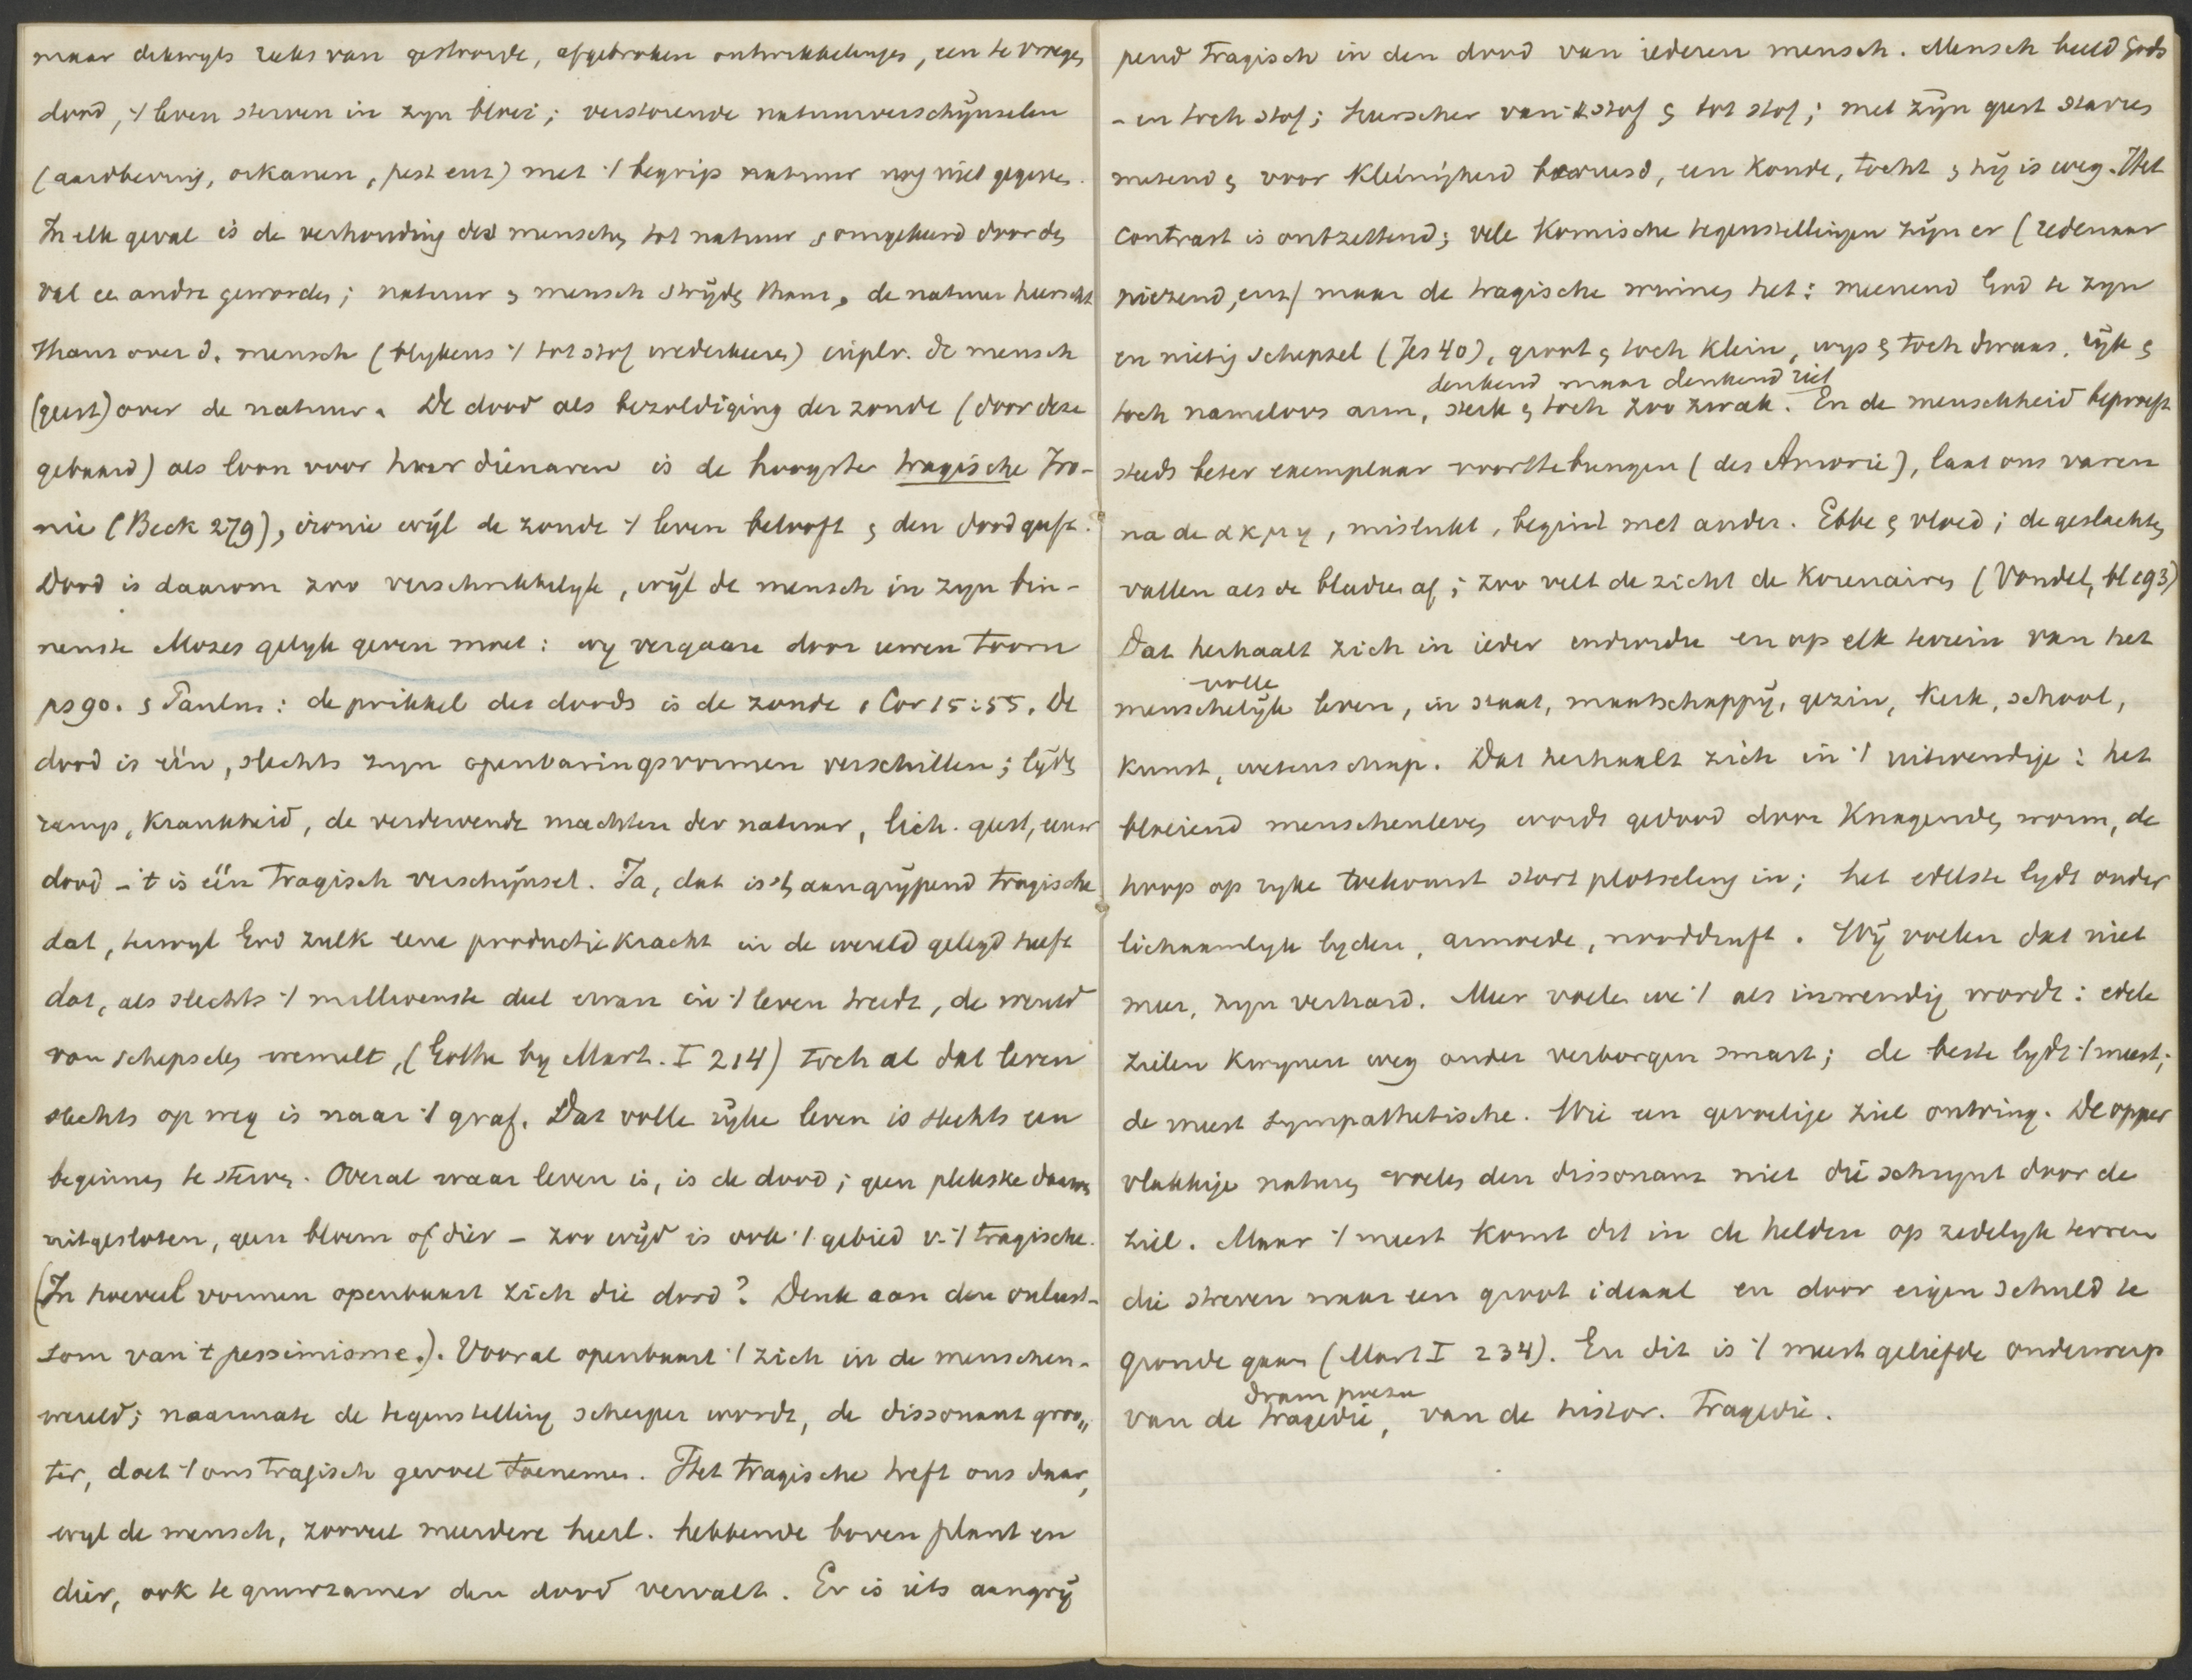 maar dikwyls reeks van gestoorde, afgebroken ontwikkelinges, een te vroege
dood, 't leven sterven in zyn bloei; verstorende natuurverschijnselen
(aardbeving, orkanen, pest enz) met 't begrip natuur nog niet gegeven.
In elk geval is de verhouding des menschen tot natuur & omgekeerd door de
val ee andre geworden; natuur & mensch strijde thans, de natuur heerscht
thans over d. mensch (blykens 't tot stof wederkeeren) in plv. de mensch
(geest) over de natuur. De dood als bezoldiging der zonde (door deze
gebaard) als loon voor haar dienaren is de hoogste tragische Iro-
nie (Beck 279), ironie wijl de zonde 't leven belooft & den dood geeft.
Dood is daarom zoo verschrikkelyk, wijl de mensch in zyn bin-
nenste Mozes gelyk geven moet: wy vergaan door uwen toorn
ps 90. & Paulus: de prikkel des doods is de zonde 1 Cor 15:55. De
dood is één, slechts zyn openbaringsvormen verschillen; lijde
ramp, krankheid, de verdervende machten der natuur, lich. geest, eeuw
dood - 't is één tragisch verschijnsel. Ja, dat is 't aangrijpend tragische
dat, terwyl God zulk eene productiekracht in de wereld gelegd heeft
dat, als slechts 't millioenste deel ervan in 't leven treedt, de wereld
van schepselen wemelt, (Göthe by Mart. I 214) toch al dat leven
slechts op weg is naar 't graf. Dat volle rijke leven is slechts een
beginnen te sterven. Overal waar leven is, is de dood; geen plekske daarvan
uitgesloten, geen bloem of dier - zoo wijd is ook 't gebied v. 't tragische.
(In hoeveel vormen openbaart zich die dood? Denk aan den onlust-
som van 't pessimisme.). Vooral openbaart 't zich in de menschen-
wereld; naarmate de tegenstelling scherper wordt, de dissonant groo„
ter, doet 't ons tragisch gevoel toenemen. Het tragische treft ons daar,
wyl de mensch, zooveel meerdere heerl. hebbende boven plant en
dier, ook te gruwzamer den dood vervalt. Er is iets aangrij
pend tragisch in den dood van iederen mensch. Mensch beeld Gods
- en toch stof; heerscher van 't stof & tot stof; met zijn geest starres
metend & voor kleinigheid bevreesd, een koude, tocht & hij is weg. Het
contrast is ontzettend; vele komische tegenstellingen zijn er (redenaar
niezend, enz) maar de tragische winnen het: meenend God te zyn
en nietig schepsel (Jes 40), groot & toch klein, wys & toch dwaas. rijk &
denkend maar denkend riet
toch nameloos arm, sterk & toch zoo zwak. En de menschheid beproeft
steeds beter exemplaar voorttebrengen (des Amorie), laat ons varen
na de ακμη, mislukt, begint met ander. Ebbe & vloed; de geslachten
vallen als de bladren af; zoo velt de zicht de korenairen (Vondel, bl 293)
Dat herhaalt zich in ieder onderdre en op elk terrein van het
volle
menschelijk leven, in staat, maatschappij, gezin, kerk, school,
kunst, wetenschap. Dat herhaalt zich in 't uitwendige: het
bloeiend menschenleven wordt gedood door knagenden worm, de
hoop op ryke toekomst stort plotseling in; het edelste lydt onder
lichaamlyk lyden, armoede, nooddruft. Wij voelen dat niet
meer, zyn verhard. Meer voelen we 't als inwendig wordt: edele
zielen kwynen weg onder verborgen smart; de beste lydt 't meest;
de meest sympathetische. Wie een gevoelige ziel ontving. De opper
vlakkige naturen voelen den dissonant niet die schrynt door de
ziel. Maar 't meest komt dit in de helden op zedelyk terrein
die streven naar een groot ideaal en door eigen schuld te
gronde gaan (Mart I 234). En dit is 't meest geliefde onderwerp
dram poezie
van de tragedie, van de histor. Tragedie.